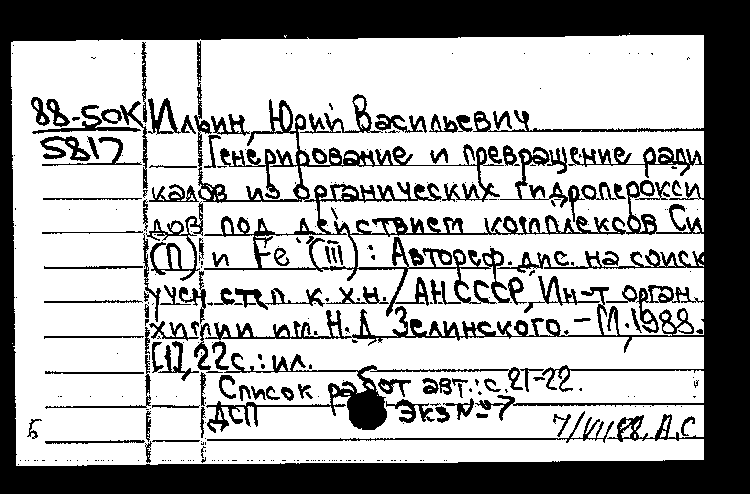 88-50К Ильин, Юрий Васильевич.
5817 Генерирование и превращение ради
калов из органических гидроперокси
дов под действием комплексов Cu
(II) и Fe (III) : Автореф. дис. на соиск
учен. степ. к. х.н. / АН СССР, Ин-т орган.
химии им. Н.Д. Зелинского. - М., 1988.
[1], 22 с. : ил.
Список работ авт.: с. 21-22.
ДСП Экз № 7
Б 7/VII 88. А.С.